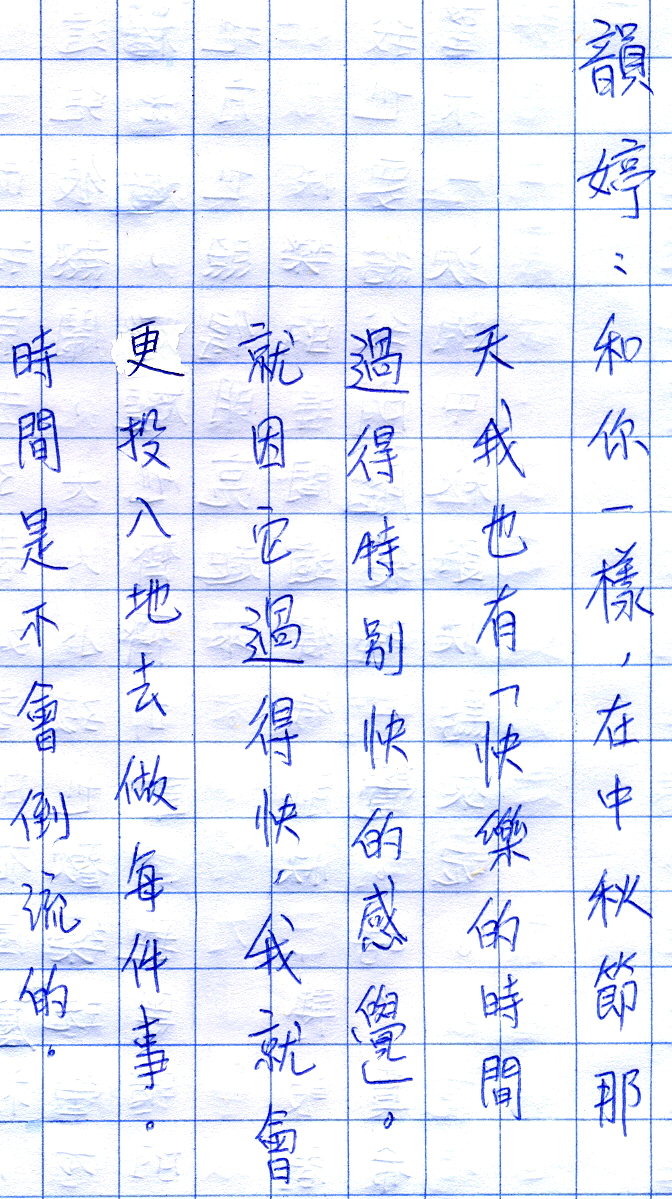 韻婷：和你一樣，在中秋節那
天我也有「快樂的時間
過得特別快的感覺」。
就因它過得快，我就會
更投入地去做每件事。
時間是不會倒流的。